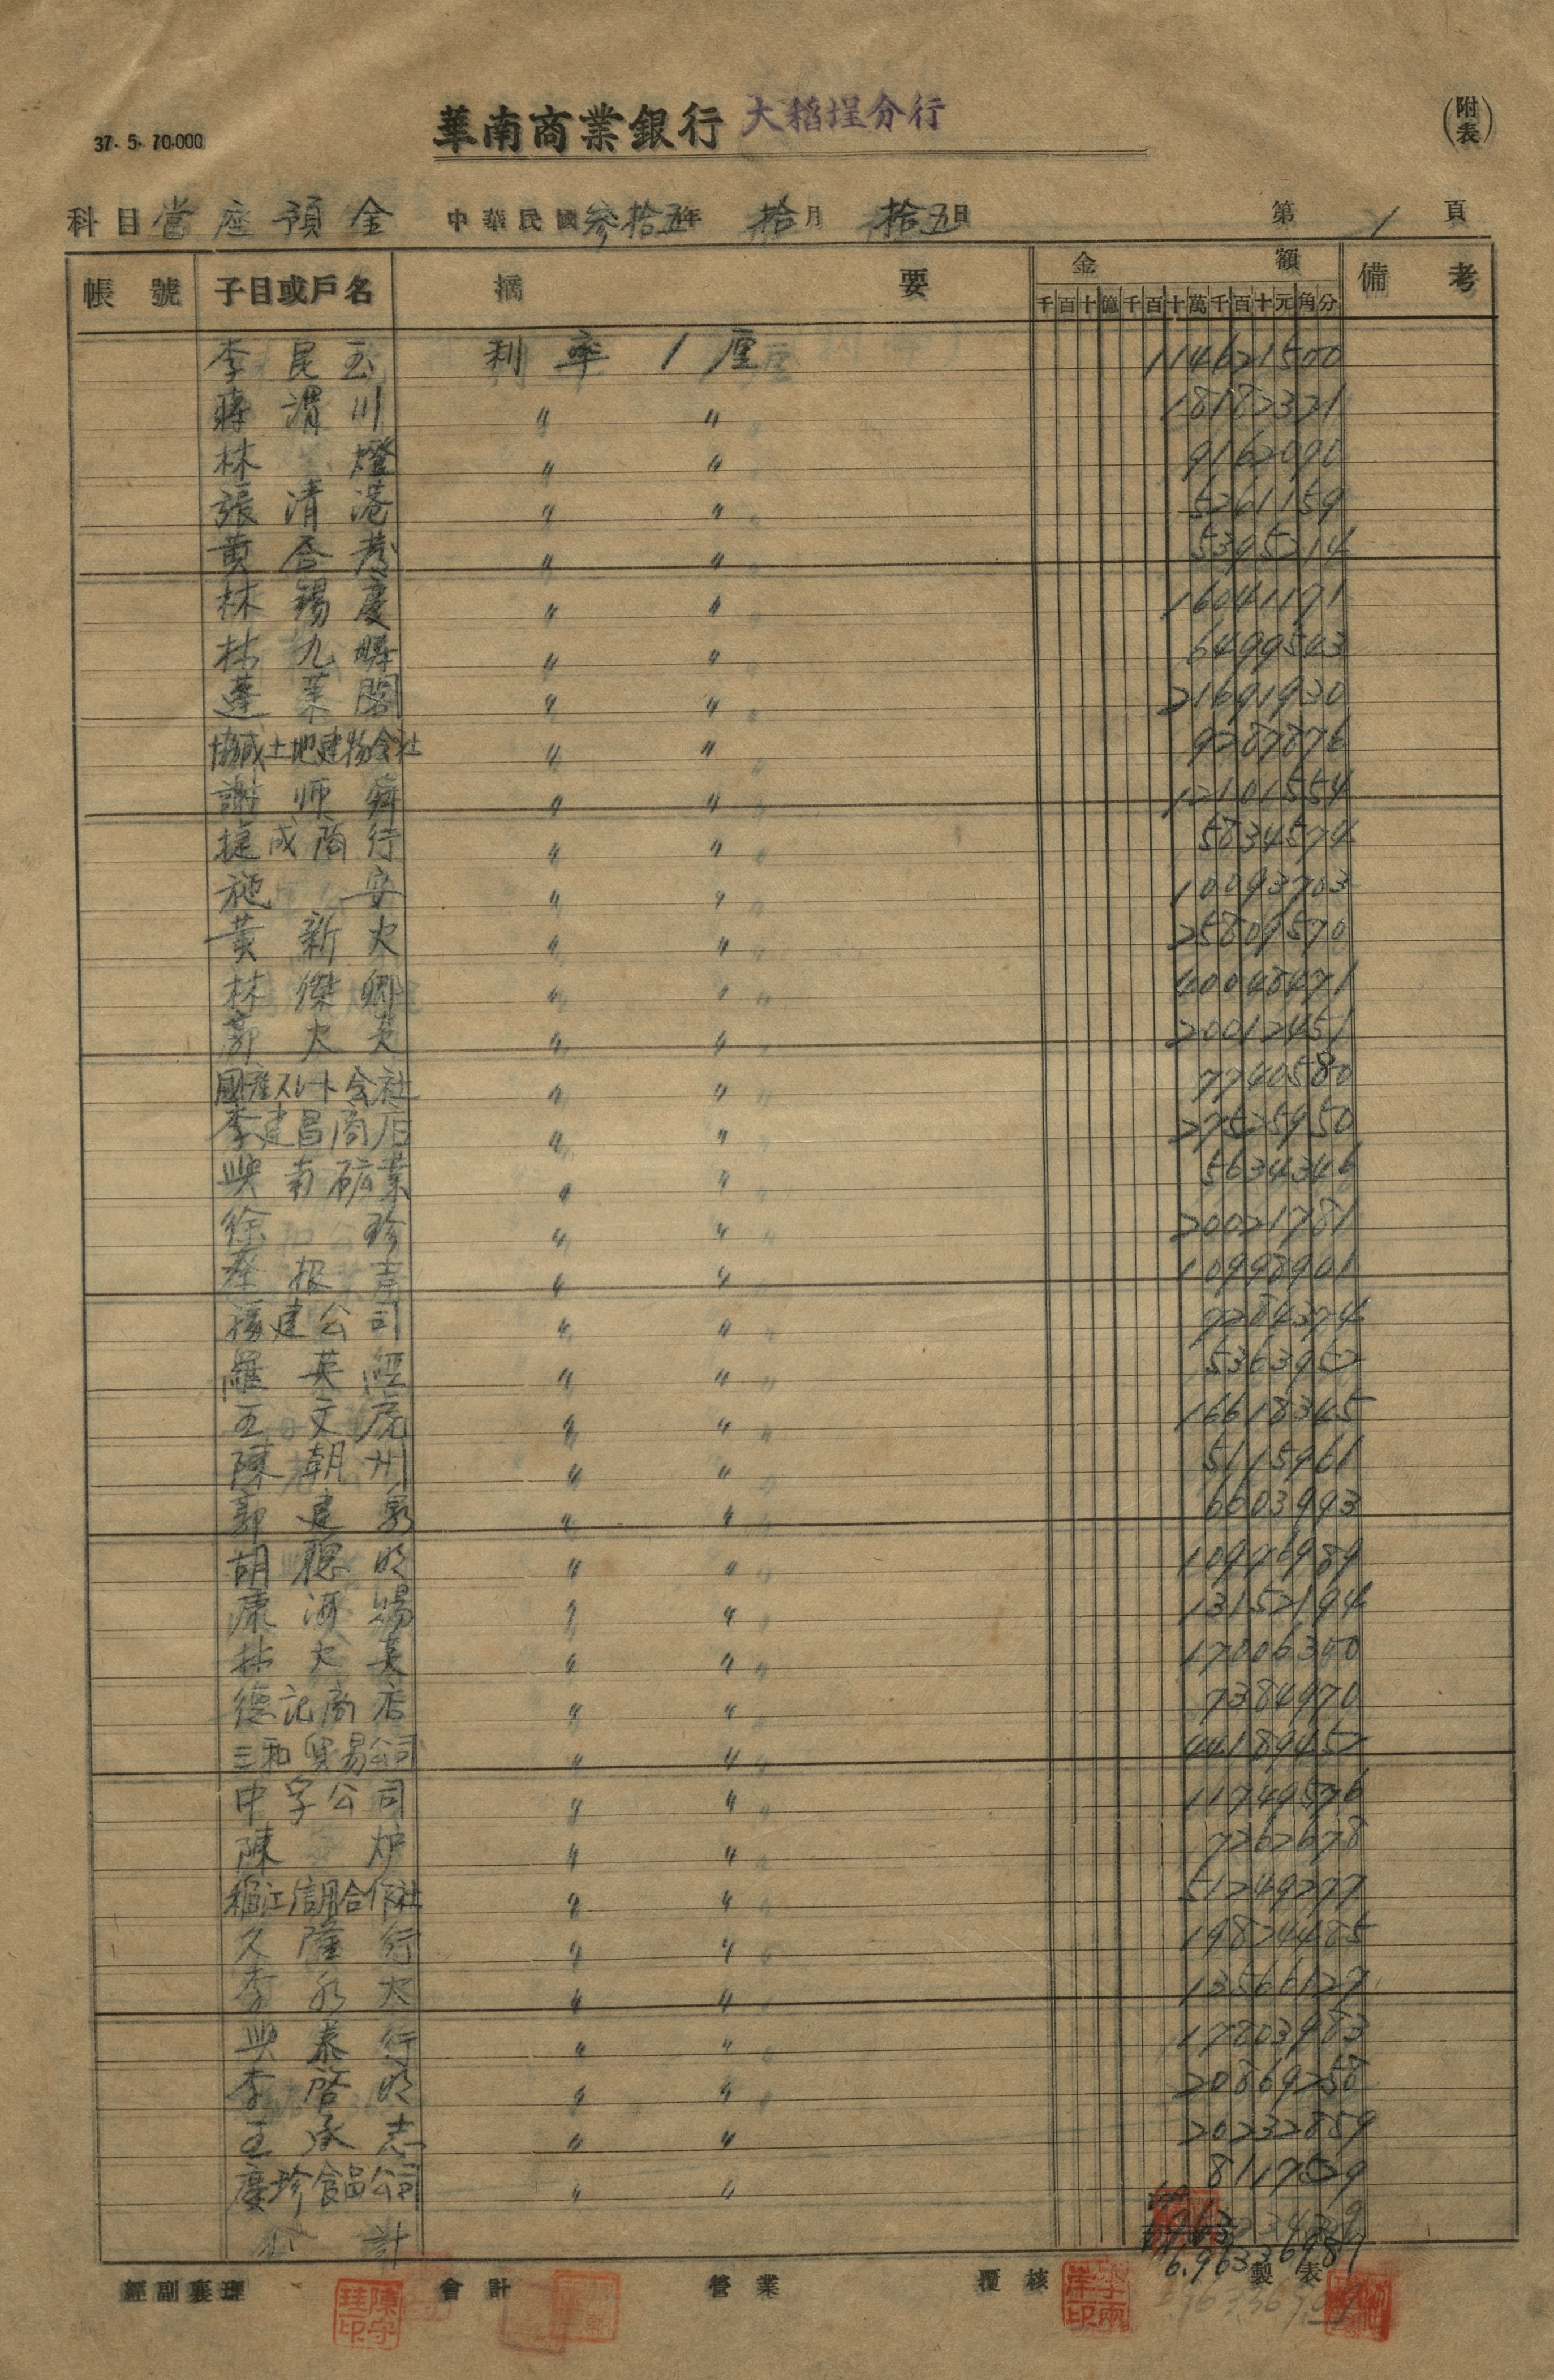 37. 5. 70.000
華南商業銀行 大稻埕分行
(附表)
科目 當座預金 中華民國參拾五年 拾月 拾五日 第 1 頁
帳號 子目或戶名 摘要 金額 備考
千百十億千百十萬千百十元角分
李昆玉 利率1厘 114621500
蔣渭川 〃 〃 18182321
林燈 〃 〃 9162090
張清港 〃 〃 5261159
黃 〃 〃 5395214
林錫慶 〃 〃 16041171
林九 〃 〃 6499543
蓬萊閣 〃 〃 21691930
協成土地建物会社 〃 〃 9287876
謝師 〃 〃 12101554
捷成商行 〃 〃 5834574
施安 〃 〃 10093703
黃新火 〃 〃 25809570
林傑卿 〃 〃 40048471
郭火炎 〃 〃 20012451
國產スレート会社 〃 〃 7740580
李建昌商店 〃 〃 27525950
興南礦業 〃 〃 5634346
徐珍 〃 〃 20021781
〃 〃 10998901
福建公司 〃 〃 7284374
羅英 〃 〃 5363952
王文虎 〃 〃 16618345
陳朝州 〃 〃 5115961
郭建 〃 〃 6603993
胡聰明 〃 〃 10976989
康河錫 〃 〃 13152194
林火英 〃 〃 17006300
德記商店 〃 〃 7384970
三和貿易公司 〃 〃 44189452
中孚公司 〃 〃 11749576
陳炉 〃 〃 7262678
稻江信用合作社 〃 〃 51249277
久隆行 〃 〃 19824485
李永大 〃 〃 13566127
興泰行 〃 〃 17803983
李啓明 〃 〃 20869258
王承志 〃 〃 20232859
慶珍食品公司 〃 〃 8117529
合計
經副襄理 會計 營業 覆核 製表